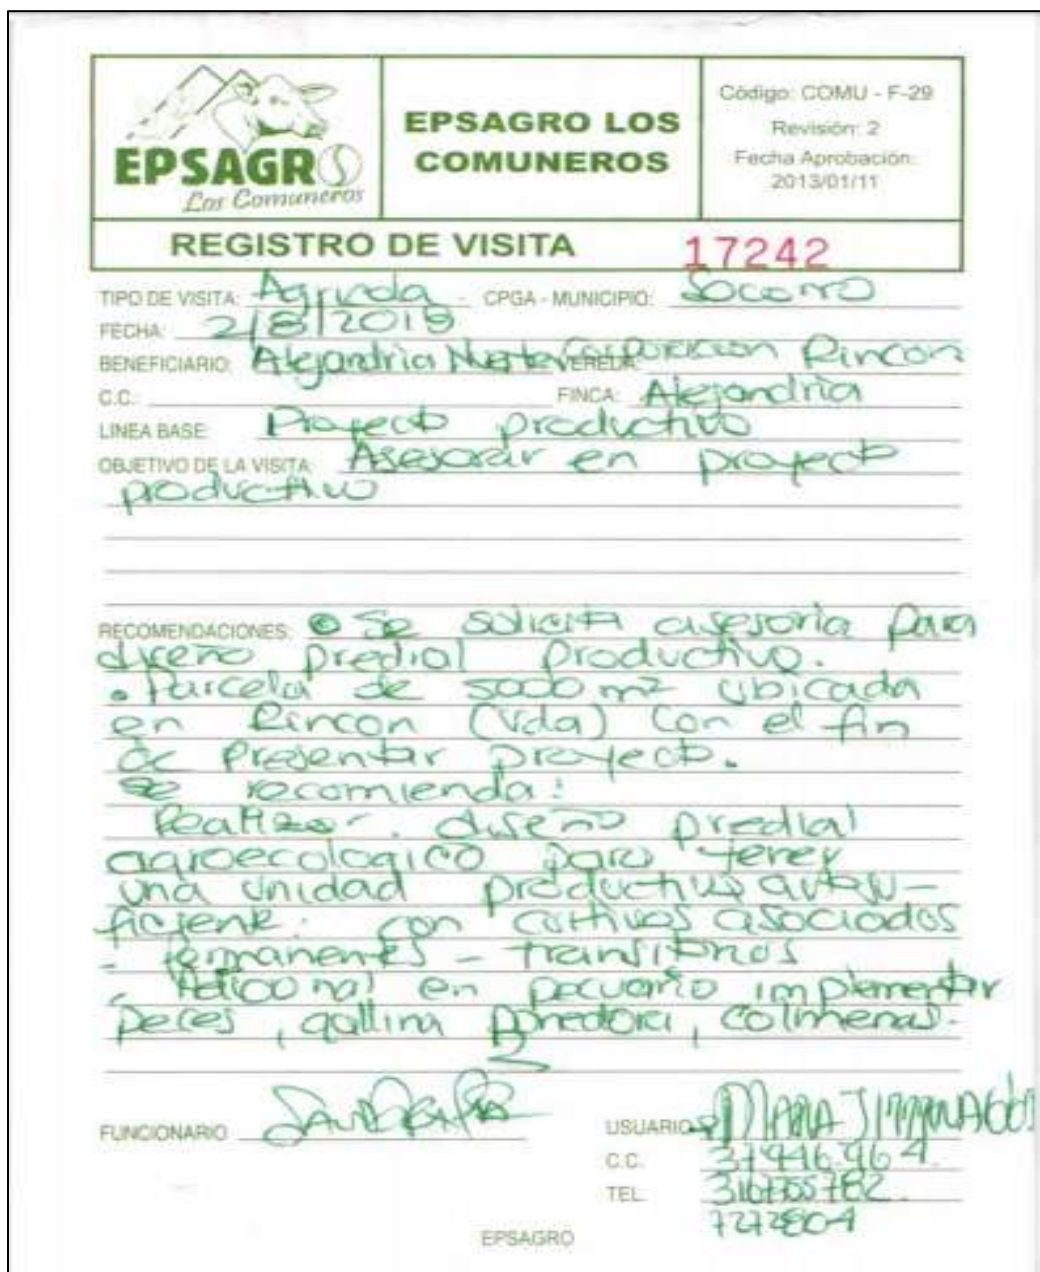 EPSAGRO
Los Comuneros
EPSAGRO LOS
COMUNEROS
Código: COMU - F-29
Revisión: 2
Fecha Aprobación:
2013/01/11
REGISTRO DE VISITA 17242
TIPO DE VISITA: Agricola CPGA - MUNICIPIO: Socorro
FECHA: 2/8/2019
BENEFICIARIO: Alejandria VEREDA: Corporacion Rincon
C.C.: FINCA: Alejandria
LINEA BASE: Proyecto productivo
OBJETIVO DE LA VISITA: Asesorar en proyecto
productivo
RECOMENDACIONES: Se solicita asesoria para
diseño predial productivo.
• Parcela de 5000 m² ubicada
en Rincon (Vda) con el fin
de presentar proyecto.
Se recomienda:
Realizar diseño predial
agroecologico para tener
una unidad productiva autosu-
ficiente: con cultivos asociados
- permanentes - transitorios
- Adicional en pecuario implementar
peces, gallina ponedora, colmenas.
FUNCIONARIO
USUARIO MARIA
C.C. 37946.964
TEL. 3107355782
7272804
EPSAGRO